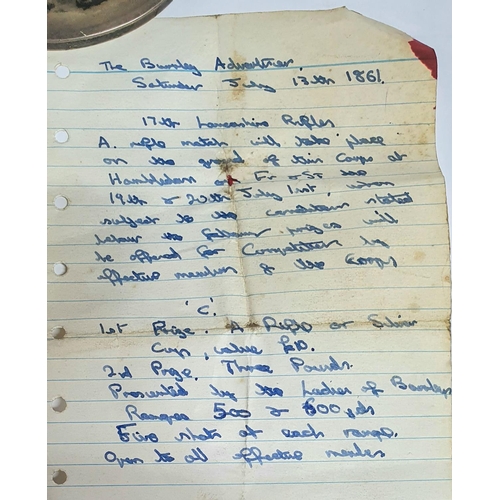 The Burnley Advertiser.
Saturday July 13th 1861.
17th Lancashire Rifles
A. rifle match will take place
on the ground of this Corps at
Hambledon on Fri or St the
19th & 20th July inst, when
subject to the conditions stated
below the following prizes will
be offered for Competition by
effective members of the Corps
'C'.
1st Prize. A Rifle or Silver
Cup, value £10.
2nd Prize. Three Pounds.
Presented by the Ladies of Burnley
Ranges 500 & 600 yds
Five shots at each range.
Open to all effective members